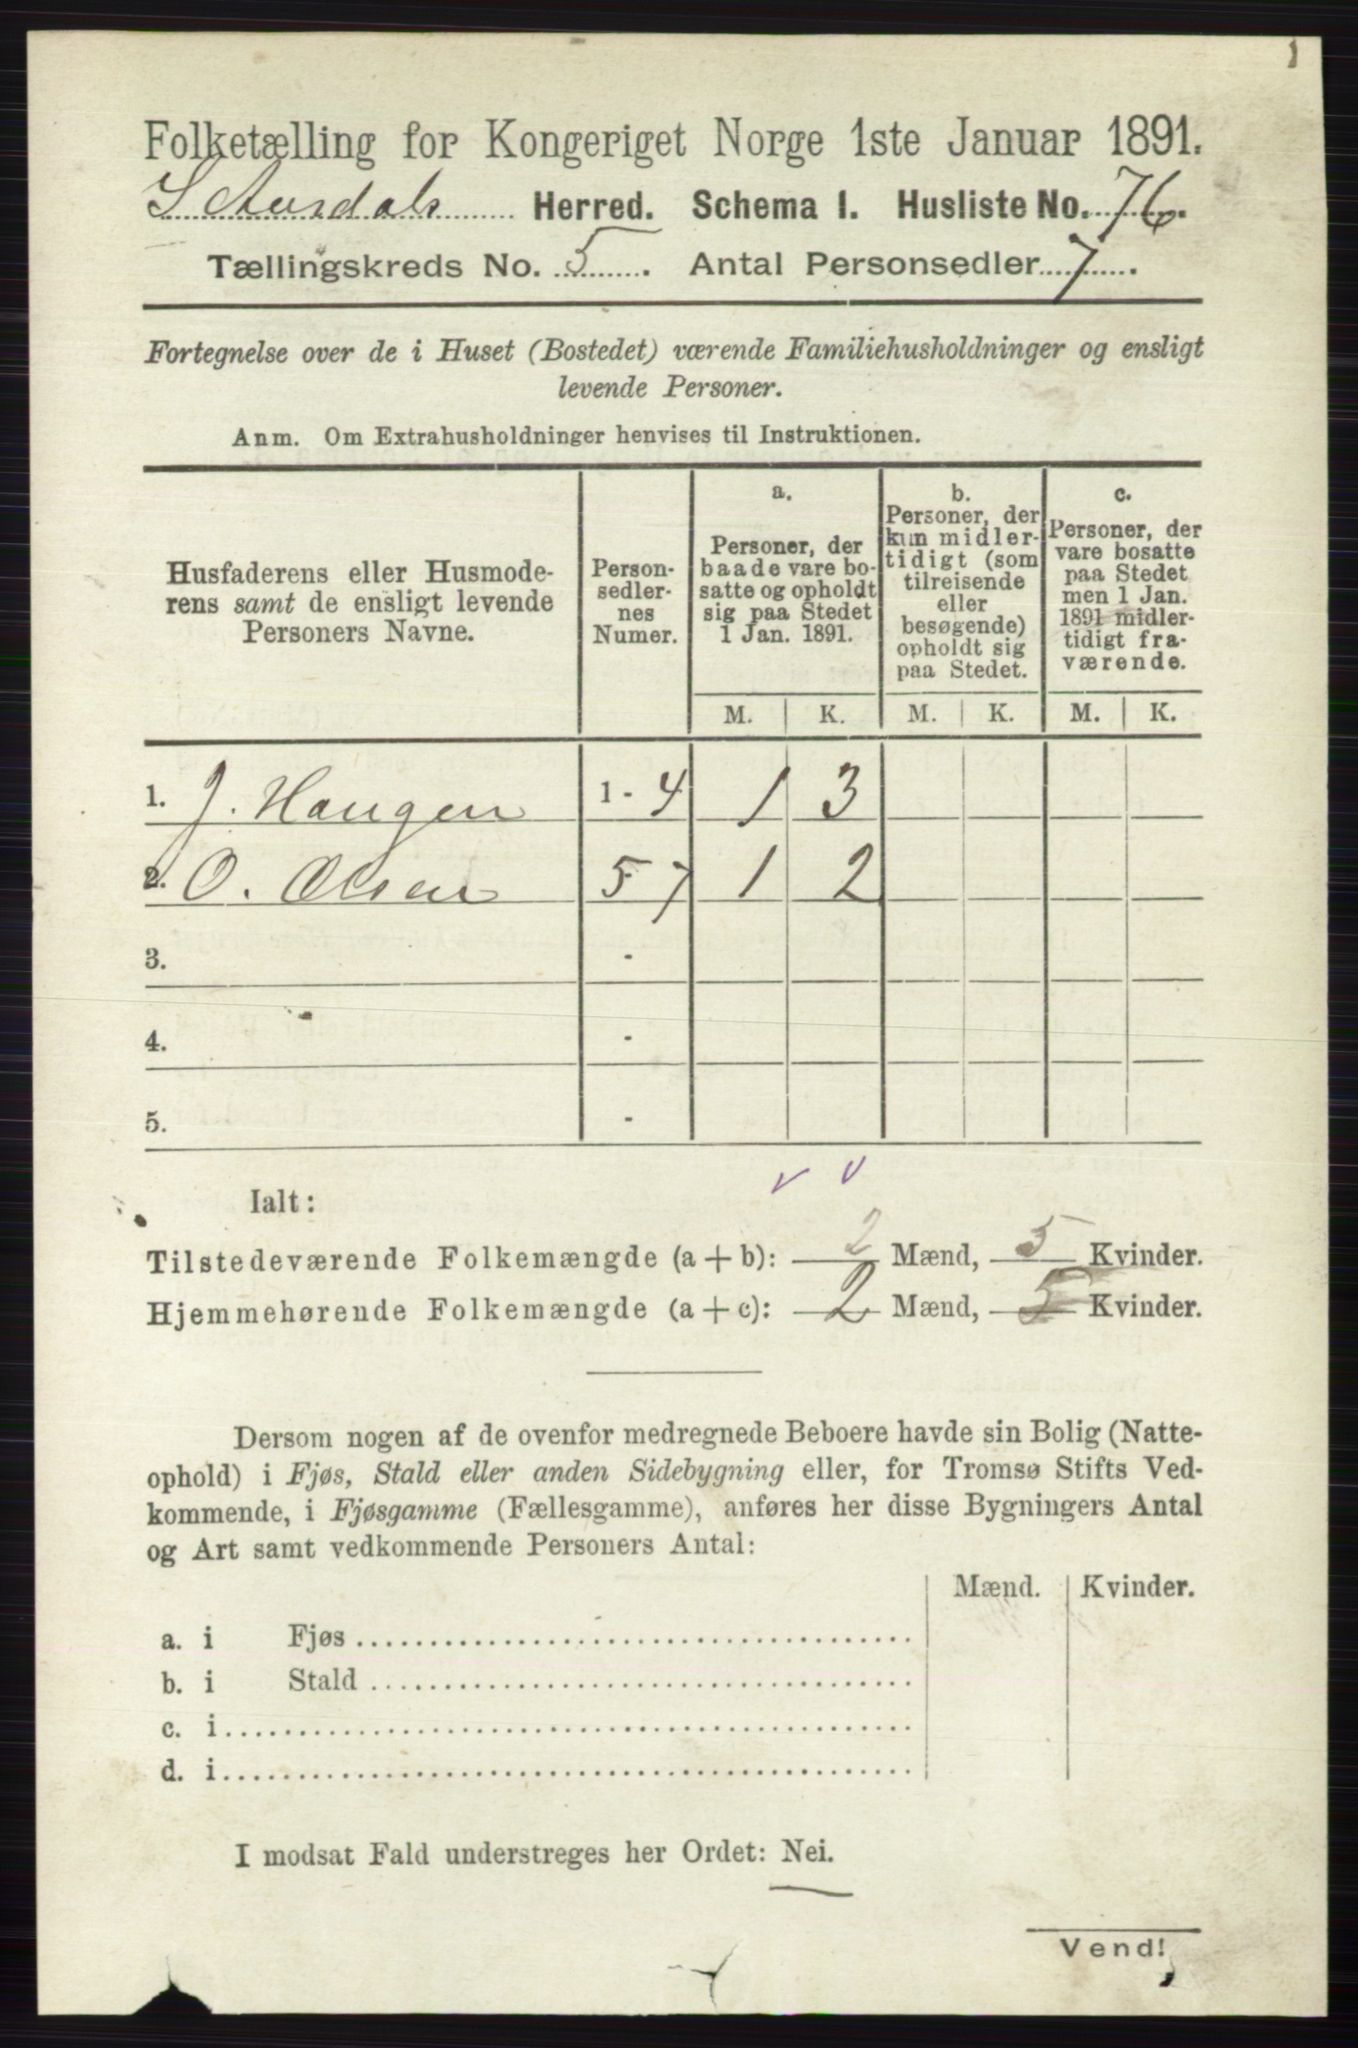 Folketælling for Kongeriget Norge 1ste Januar 1891.
S Aurdals Herred. Schema I. Husliste No. 76.
Tællingskreds No. 5. Antal Personsedler 7.
Fortegnelse over de i Huset (Bostedet) værende Familiehusholdninger og ensligt
levende Personer.
Anm. Om Extrahusholdninger henvises til Instruktionen.
Husfaderens eller Husmode-
rens samt de ensligt levende
Personers Navne.
Person-
sedler-
nes
Numer.
a.
Personer, der
baade vare bo-
satte og opholdt
sig paa Stedet
1 Jan. 1891.
b.
Personer, der
kun midler-
tidigt (som
tilreisende
eller
besøgende)
opholdt sig
paa Stedet.
c.
Personer, der
vare bosatte
paa Stedet
men 1 Jan.
1891 midler-
tidigt fra-
værende.
M. K. M. K. M. K.
1. J. Haugen 1 - 4 1 3
2. O. Olsen 5 7 1 2
3. -
4. -
5. -
Ialt:
Tilstedeværende Folkemængde (a + b): 2 Mænd, 5 Kvinder.
Hjemmehørende Folkemængde (a + c): 2 Mænd, 5 Kvinder.
Dersom nogen af de ovenfor medregnede Beboere havde sin Bolig (Natte-
ophold) i Fjøs, Stald eller anden Sidebygning eller, for Tromsø Stifts Ved-
kommende, i Fjøsgamme (Fællesgamme), anføres her disse Bygningers Antal
og Art samt vedkommende Personers Antal:
Mænd. Kvinder.
a. i Fjøs
b. i Stald
c. i
d. i
I modsat Fald understreges her Ordet: Nei.
Vend!